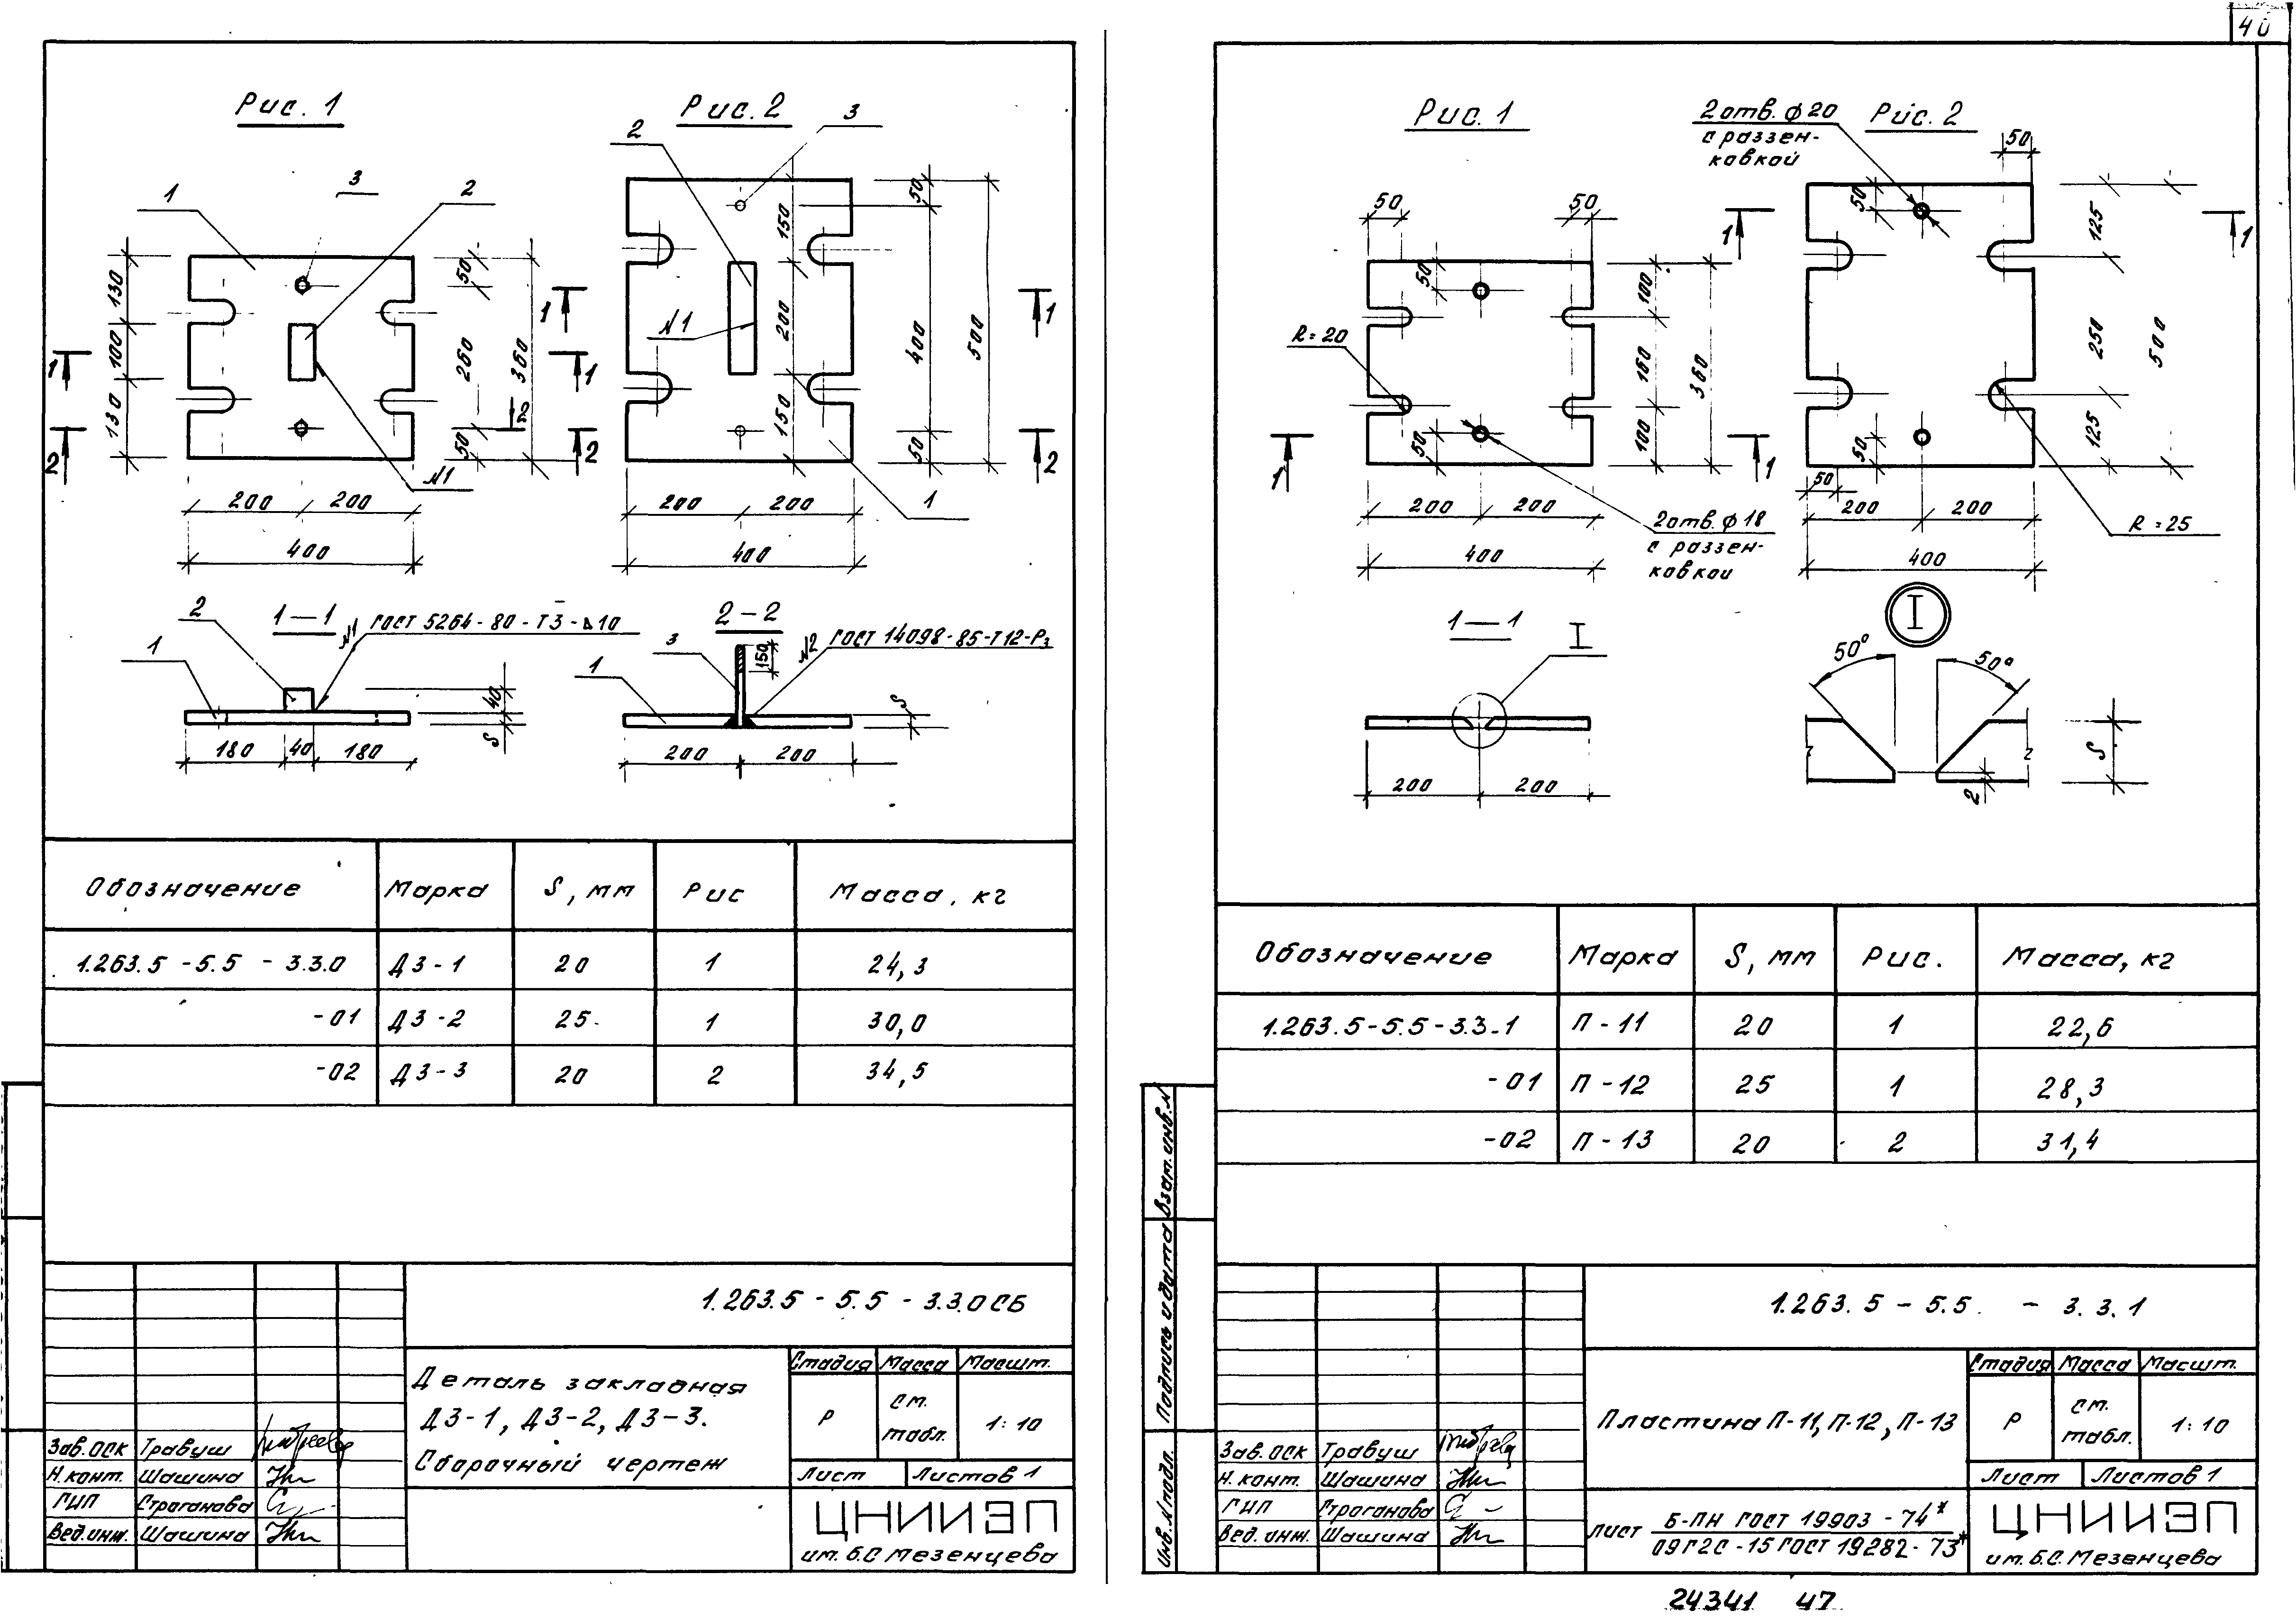 40
Рис. 1
Рис. 2
1
3
2
2
3
130
100
130
50
260
50
360
1
1
2
2
2
N1
200
200
400
150
200
150
50
400
50
500
1
1
2
2
N1
1
200
200
400
1–1
2
1
N1 ГОСТ 5264-80-Т3-Δ10
40
S
180
40
180
2–2
3
1
150
N2 ГОСТ 14098-85-Т12-Рз
S
200
200
Обозначение Марка S, мм Рис Масса, кг
1.263.5-5.5-3.3.0 ДЗ-1 20 1 24,3
-01 ДЗ-2 25 1 30,0
-02 ДЗ-3 20 2 34,5
1.263.5-5.5-3.3.0СБ
Деталь закладная
ДЗ-1, ДЗ-2, ДЗ-3.
Сборочный чертеж
Стадия Масса Масшт.
Р см. табл. 1:10
Лист Листов 1
Зав. ОСК Травуш
Н.конт. Шашина
ГИП Строганова
Вед.инж. Шашина
ЦНИИЭП
им. Б.С Мезенцева
Рис. 1
2отв. ф20
с раззен-
ковкой
Рис. 2
50
50
50
50
R=20
100
160
100
360
1
1
200
200
400
2отв. ф18
с раззен-
ковкой
50
50
50
50
125
250
125
500
1
1
200
200
400
R=25
1–1
I
200
200
I
50°
50°
S
2
Обозначение Марка S, мм Рис. Масса, кг
1.263.5-5.5-3.3.1 П-11 20 1 22,6
-01 П-12 25 1 28,3
-02 П-13 20 2 31,4
Взам. инв. N
Подпись и дата
Инв. N подл.
1.263.5-5.5 - 3.3.1
Пластина П-11, П-12, П-13
Стадия Масса Масшт.
Р см. табл. 1:10
Лист Листов 1
Зав. ОСК Травуш
Н. конт. Шашина
ГИП Строганова
Вед. инж. Шашина
Лист Б-ПН ГОСТ 19903-74*
09Г2С-15 ГОСТ 19282-73*
ЦНИИЭП
им. Б.С. Мезенцева
24341 47